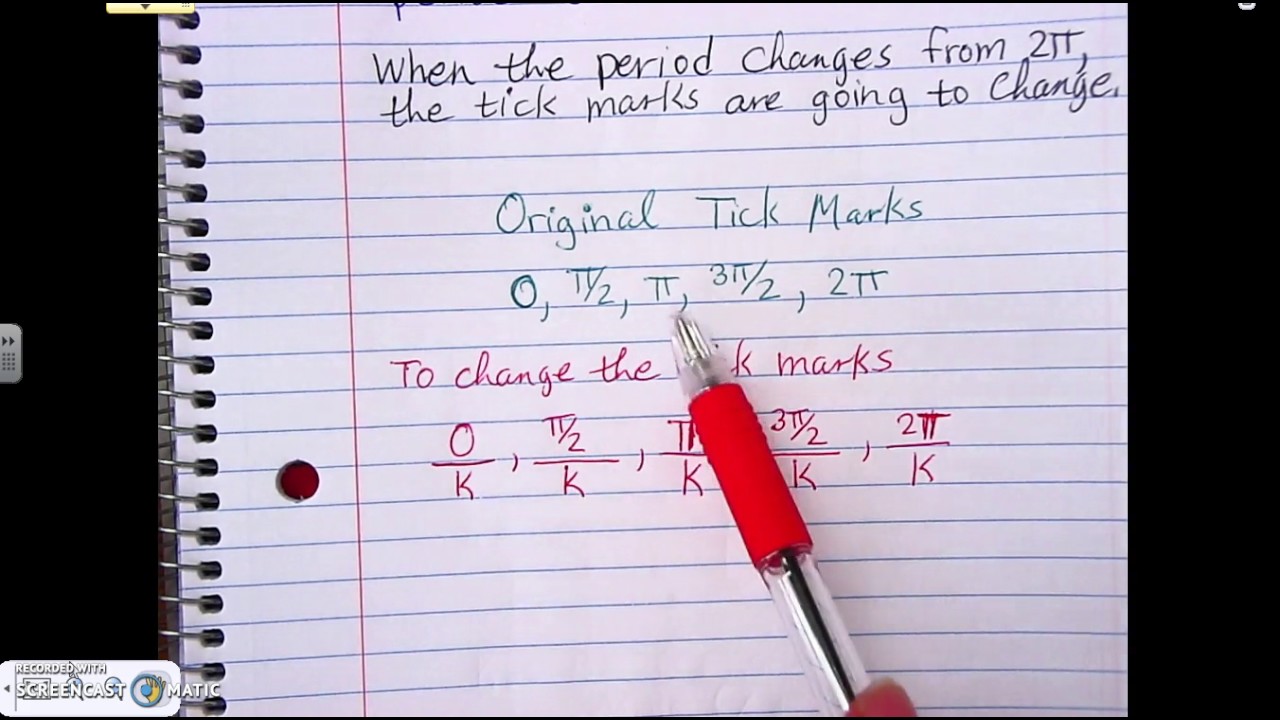 When the period changes from 2π,
the tick marks are going to change.
Original Tick Marks
0, π/2, π, 3π/2, 2π
To change the marks
0/K, π/2/K, π/K, 3π/2/K, 2π/K
RECORDED WITH
SCREENCAST MATIC